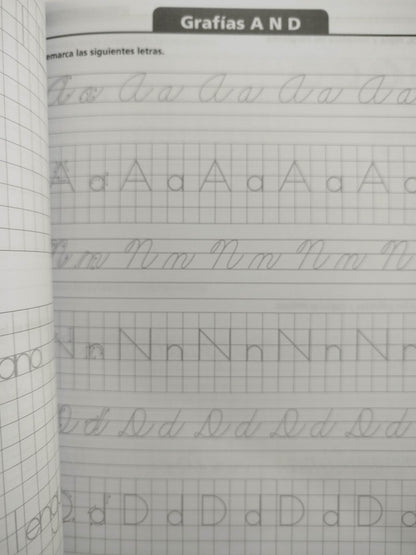 Grafías A N D
emarca las siguientes letras.
A a A a A a A a A a
A a A a A a A a A
N n N n N n N n N
N n N n N n N n N n
D d D d D d D d D d
D d D d D d D d D d
ano
Leng